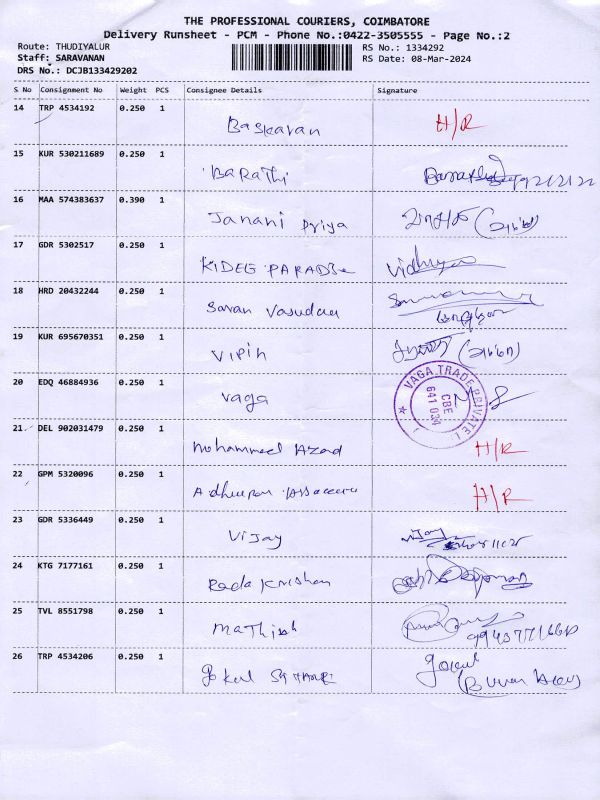 THE PROFESSIONAL COURIERS, COIMBATORE
Delivery Runsheet - PCM - Phone No.:0422-3505555 - Page No.:2
Route: THUDIYALUR
RS No.: 1334292
Staff: SARAVANAN
RS Date: 08-Mar-2024
DRS No.: DCJB133429202
S No Consignment No Weight PCS Consignee Details Signature
14 TRP 4534192 0.250 1 Baskaran H/R
15 KUR 530211689 0.250 1 BARATHI
16 MAA 574383637 0.390 1 Janani Priya
17 GDR 5302517 0.250 1 Vidhya
18 HRD 20432244 0.250 1 Saran Vasudau
19 KUR 695670351 0.250 1 Vipin
20 EDQ 46884936 0.250 1 vaga
VAGA TRADE PRIVATE
CBE
641 034
21 DEL 902031479 0.250 1 Mohammed Azad H/R
22 GPM 5320096 0.250 1 H/R
23 GDR 5336449 0.250 1 Vijay Vijay
24 KTG 7177161 0.250 1 Rada Krishan
25 TVL 8551798 0.250 1 Mathish
26 TRP 4534206 0.250 1 Gokul Gokul